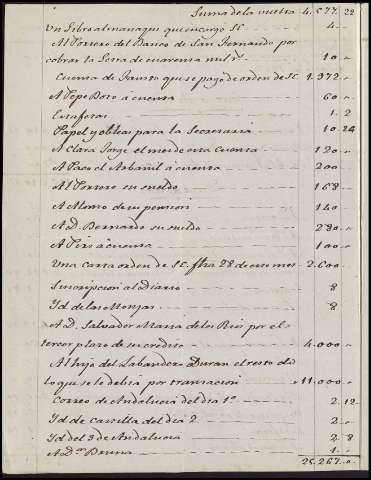 Suma de la vuelta 4.577. 22
Un Libro almanaque que encargó SE. 4.. "
Al Portero del Banco de San Fernando por
cobrar la Letra de cuarenta mil rs. 10.. "
Cuenta de Fausto que se pagó de orden de SE. 1.972.. "
A Pepe Boro á cuenta 60.. "
Estafetas 1.. 2
Papel y obleas para la Secretaria 10. 24
A Clara Jorge el mes de esta Cuenta 120.. "
A Paco el Arbañil á cuenta 200.. "
Al Portero su sueldo 168.. "
A Alonso de su pension 140.. "
A D. Bernardo su sueldo 280.. "
A Piris á cuenta 100.. "
Una carta orden de SE. fha 28 de ese mes 2.600.. "
Suscripcion al Diario 8
Yd de las Monjas 8
A D. Salvador Maria de los Rios por el
tercer plazo de su credito 4.000.. "
Al hijo del Labandero Duran el resto de
lo que se le debia por transacion 11.000.. "
Correo de Andalucia del dia 1º 2. 12
Yd de Castilla del dia 2 2.. "
Yd del 3 de Andalucia 2. 8
A Dn. Bruna 1.. "
25.267.. "